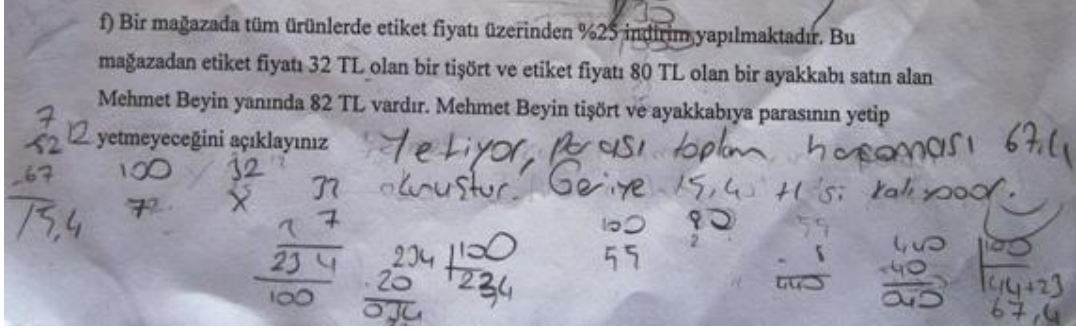 f) Bir mağazada tüm ürünlerde etiket fiyatı üzerinden %25 indirim yapılmaktadır. Bu
mağazadan etiket fiyatı 32 TL olan bir tişört ve etiket fiyatı 80 TL olan bir ayakkabı satın alan
Mehmet Beyin yanında 82 TL vardır. Mehmet Beyin tişört ve ayakkabıya parasının yetip
yetmeyeceğini açıklayınız
Yetiyor, parası toplam harcaması 67,4
olmuştur. Geriye 15,4 tl si kalıyor.
-67
15,4
100 32
72 X
32
7
234
100
234 100
20 23,4
034
100 80
55
55
8
440
440 100
-40 44+23
040 67,4